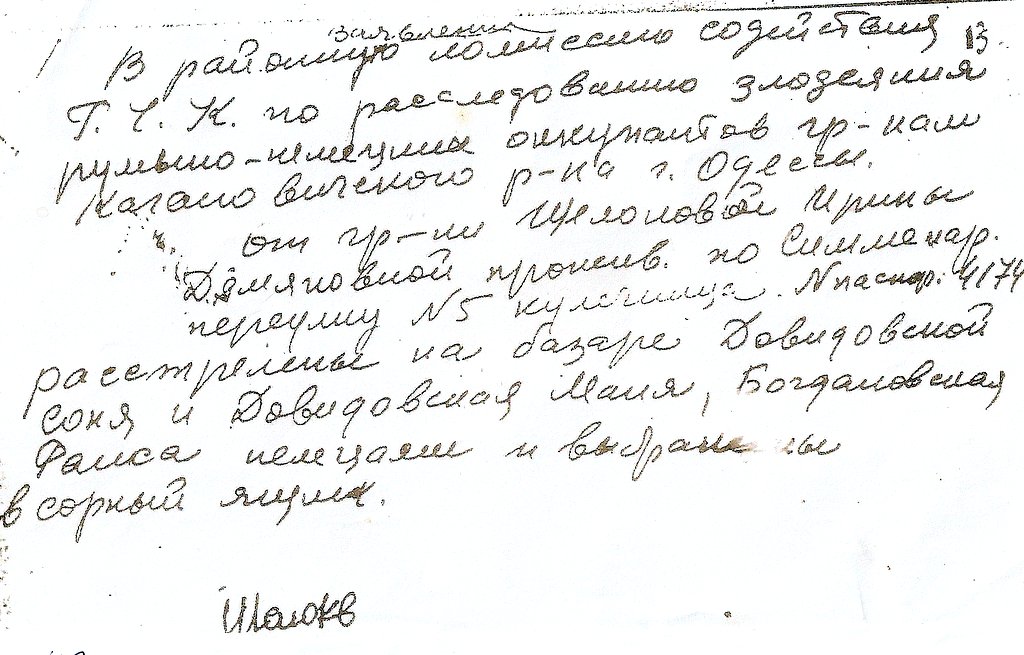 заявление
В районную комиссию содействия 13.
Г. Ч. К. по расследованию злодеяния
румыно-немецких оккупантов гр-нам
Кагановичского р-на г. Одессы.
от гр-ки Ирины
прожив. по
переулку N5 . N паспор. 4174
расстрелены на базаре Довидовской
Соня и Довидовская Маня, Богдановская
Фаиса немецами и выбраны
в сорный ящик.